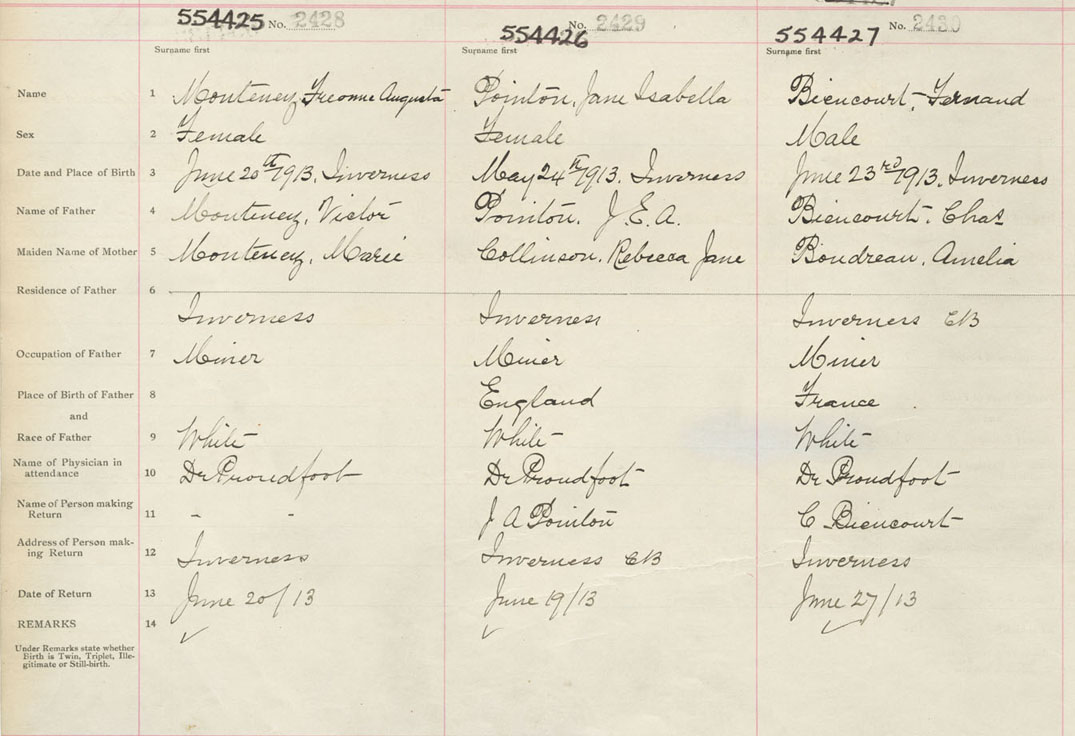 554425 No. 2428 554426 No. 2429 554427 No. 2430
Surname first Surname first Surname first
Name 1 Monteney, Augusta Pointon, Jane Isabella Biencourt, Fernand
Sex 2 Female Female Male
Date and Place of Birth 3 June 20th 1913. Inverness May 24th 1913. Inverness June 23rd 1913. Inverness
Name of Father 4 Monteney, Victor Pointon. J.E.A. Biencourt. Chas
Maiden Name of Mother 5 Monteney, Marie Collinson, Rebecca Jane Boudreau, Amelia
Residence of Father 6
Inverness Inverness Inverness CB
Occupation of Father 7 Miner Miner Miner
Place of Birth of Father 8 England France
and
Race of Father 9 White White White
Name of Physician in
attendance 10 Dr Proudfoot Dr Proudfoot Dr Proudfoot
Name of Person making
Return 11 - - J A Pointon C Biencourt
Address of Person mak-
ing Return 12 Inverness Inverness CB Inverness
Date of Return 13 June 20/13 June 19/13 June 27/13
REMARKS 14
Under Remarks state whether
Birth is Twin, Triplet, Ille-
gitimate or Still-birth.